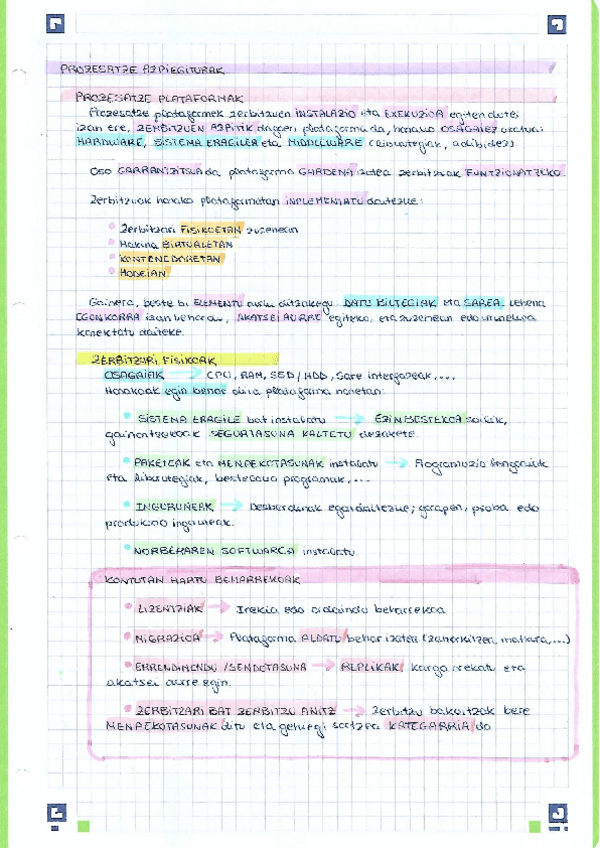 PROZESATZE AZPIEGITURAK
PROZESATZE PLATAFORMAK
Prozesatze plataformek zerbitzuen INSTALAZIO eta EXEKUZIOA egiten dute;
izan ere, ZERBITZUEN AZPITIK dagoen plataforma da, honako OSAGAIEZ osatua:
HARDWARE, SISTEMA ERAGILEA eta MIDDLEWARE (liburutegiak, adibidez).
Oso GARRANTZITSUA da plataforma GARDENA izatea zerbitzuak FUNTZIONATZEKO.
Zerbitzuak honako plataformatan INPLEMENTATU daitezke:
Zerbitzari FISIKOETAN zuzenean
Makina BIRTUALETAN
KONTENEDORETAN
HODEIAN
Gainera, beste bi ELEMENTU aurki ditzakegu DATU BILTEGIAK eta SAREA. Lehena
EGONKORRA izan behar du, AKATSEI AURRE egiteko, eta zuzenean edo urrunekoa
konektatu daiteke.
ZERBITZARI FISIKOAK
OSAGAIAK → CPU, RAM, SSD/HDD, Sare interfazeak,...
Honakoak egin behar dira plataforma honetan:
SISTEMA ERAGILE bat instalatu → EZINBESTEKOA soilik,
gainontzekoak SEGURTASUNA KALTETU dezakete.
PAKETEAK eta MENDEKOTASUNAK instalatu → Programazio lengoaiak
eta liburutegiak, bestelako programak,...
INGURUNEAK → Desberdinak egon daitezke; garapen, proba edo
produkzio inguruneak.
NORBERAREN SOFTWAREA instalatu
KONTUTAN HARTU BEHARREKOAK
LIZENTZIAK → Irekia edo ordaindu beharrekoa
MIGRAZIOA → Plataforma ALDATU behar izatea (zaharkitzen, matxura,...)
ERRENDIMENDU/SENDOTASUNA → REPLIKAK karga orekatu eta
akatsei aurre egin.
ZERBITZARI BAT ZERBITZU ANITZ → Zerbitzu bakoitzak bere
MENPEKOTASUNAK ditu eta gehiegi sartzea KATEGARRIA da